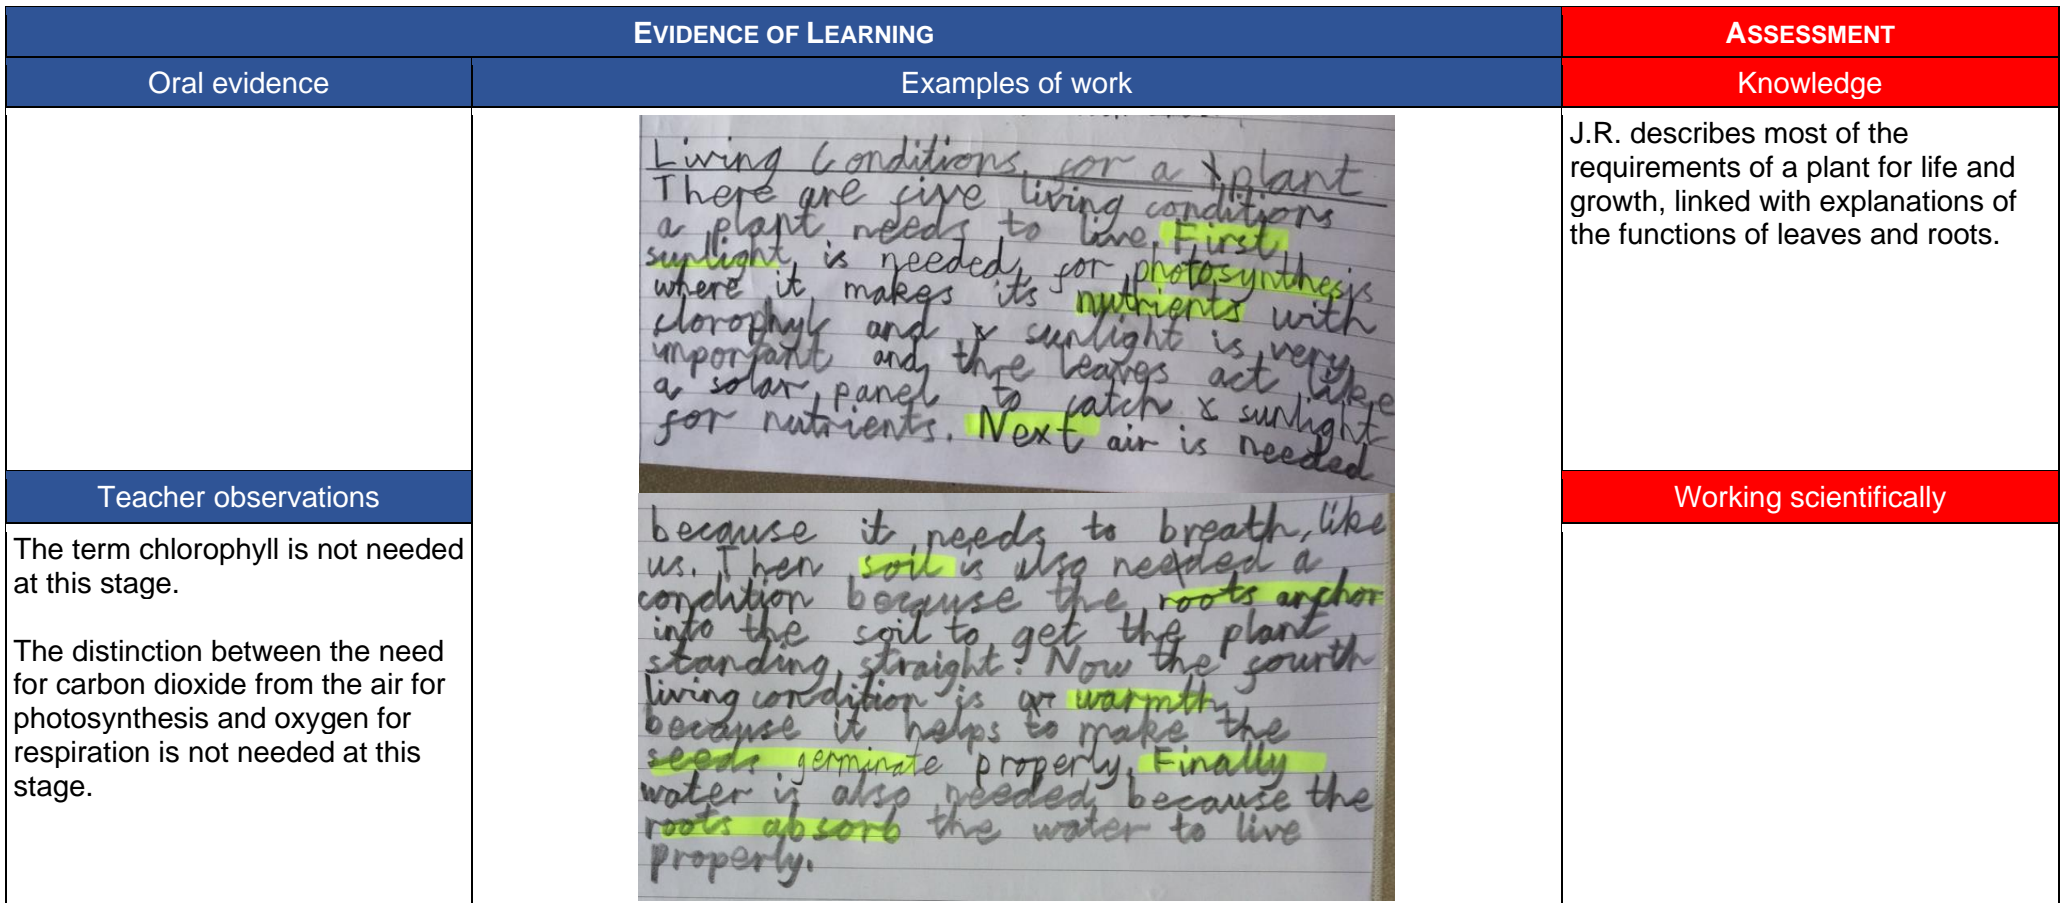 EVIDENCE OF LEARNING
ASSESSMENT
Oral evidence
Examples of work
Knowledge
Living Conditions for a plant
There are five living conditions
a plant needs to live. First,
sunlight is needed for photosynthesis
where it makes its nutrients with
clorophyll and sunlight is very
important and the leaves act like
a solar panel to catch sunlight
for nutrients. Next air is needed
because it needs to breath, like
us. Then soil is also needed a
condition because the roots anchor
into the soil to get the plant
standing straight. Now the fourth
living condition is warmth
because it helps to make the
seeds germinate properly. Finally
water is also needed because the
roots absorb the water to live
properly.
J.R. describes most of the
requirements of a plant for life and
growth, linked with explanations of
the functions of leaves and roots.
Teacher observations
The term chlorophyll is not needed
at this stage.
The distinction between the need
for carbon dioxide from the air for
photosynthesis and oxygen for
respiration is not needed at this
stage.
Working scientifically